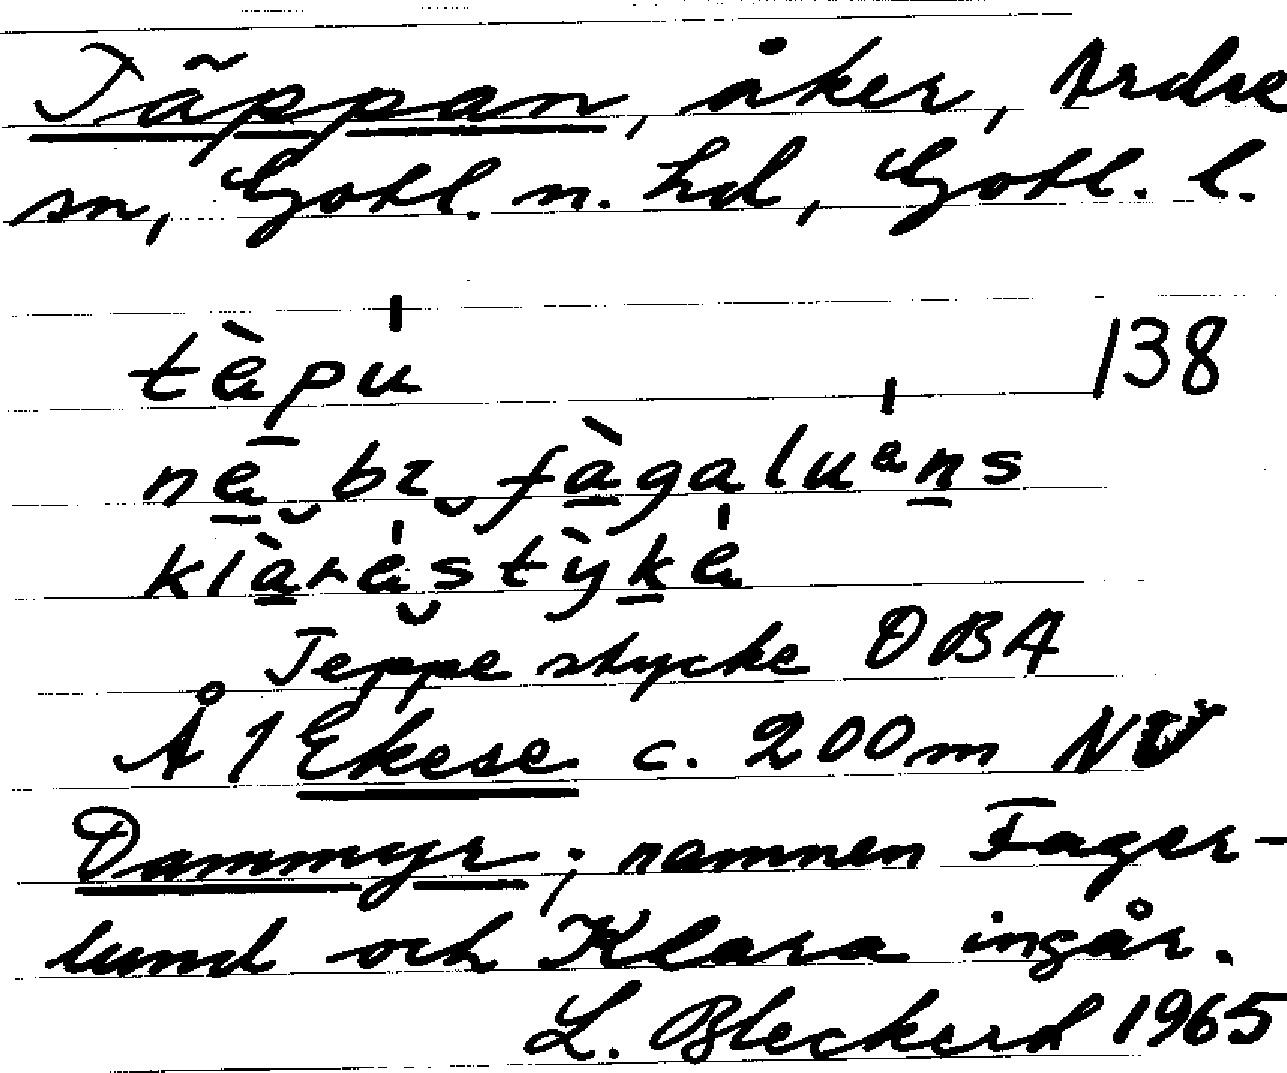 Täppan, åker, Ardre
sn, Gotl. n. hd, Gotl. l.
tὲpu 138
nē bi fàgaluəns
klàrəstỳkə
Teppe stycke OBA
Å 1 Ekese c. 200m NV
Dammyr; namnen Fager-
lund och Klara ingår.
L. Bleckerd 1965